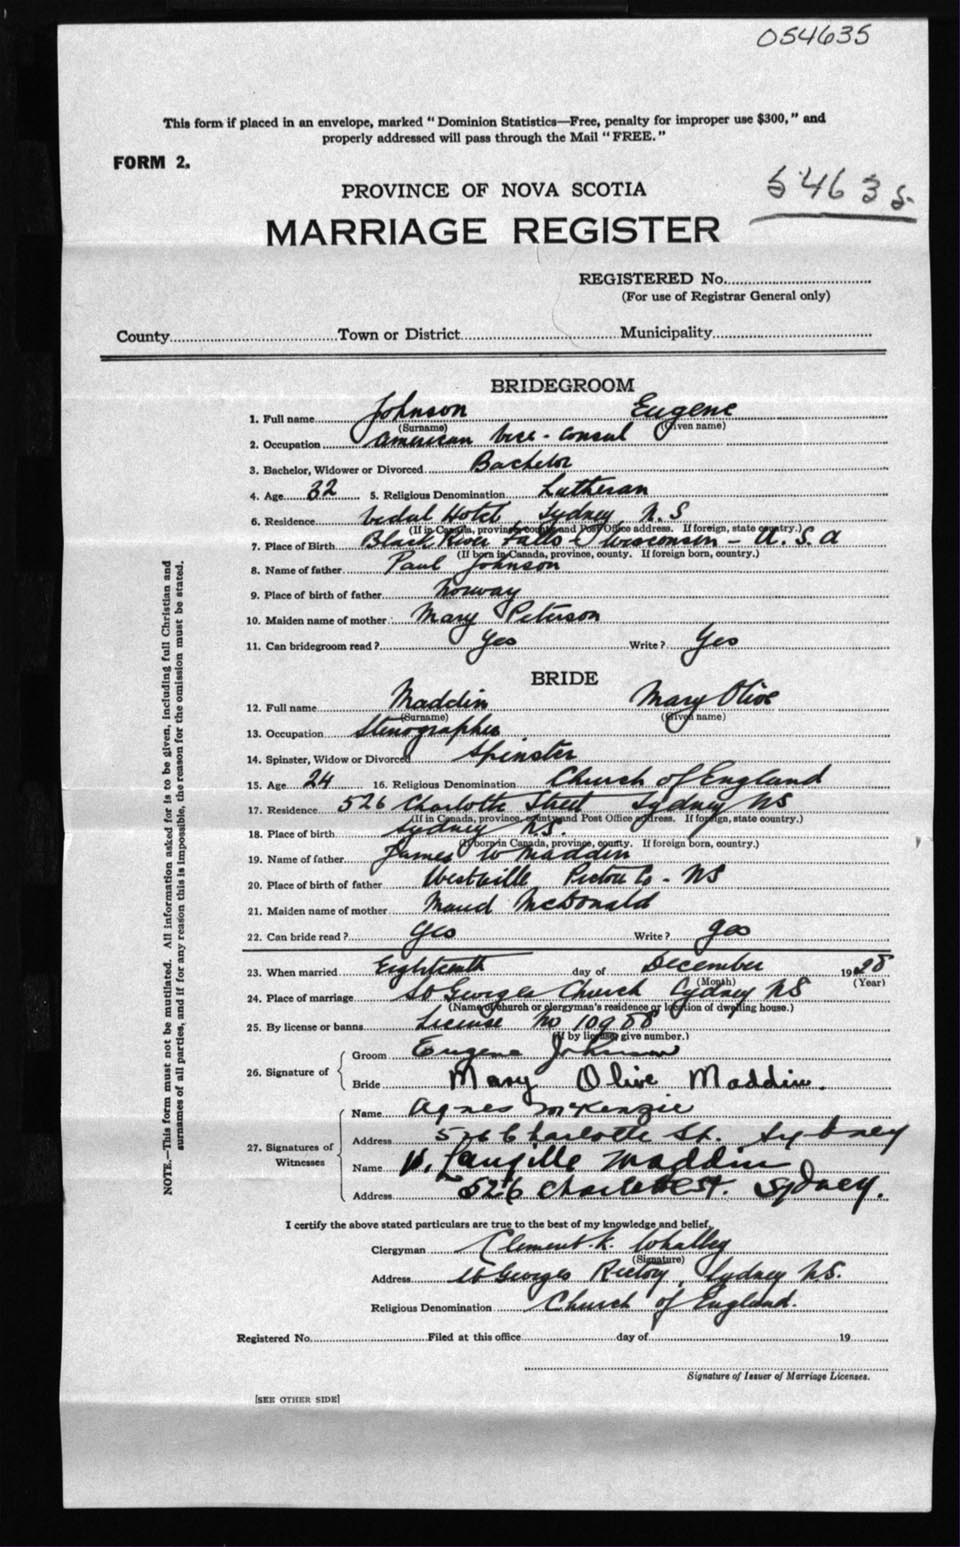 054635
This form if placed in an envelope, marked "Dominion Statistics—Free, penalty for improper use $300," and
properly addressed will pass through the Mail "FREE."
FORM 2.
54635
PROVINCE OF NOVA SCOTIA
MARRIAGE REGISTER
REGISTERED No.
(For use of Registrar General only)
County Town or District Municipality
BRIDEGROOM
1. Full name Johnson Eugene
(Surname) (Given name)
2. Occupation American Vice-Consul
3. Bachelor, Widower or Divorced Bachelor
4. Age 32 5. Religious Denomination Lutheran
6. Residence Hotel Sydney N.S
(If in Canada, province, county and Post Office address. If foreign, state country.)
7. Place of Birth Black River Falls Wisconsin - U.S.A
(If born in Canada, province, county. If foreign born, country.)
8. Name of father Paul Johnson
9. Place of birth of father Norway
10. Maiden name of mother Mary Peterson
11. Can bridegroom read? Yes Write? Yes
BRIDE
12. Full name Maddin Mary Olive
(Surname) (Given name)
13. Occupation Stenographer
14. Spinster, Widow or Divorced Spinster
15. Age 24 16. Religious Denomination Church of England
17. Residence 526 Charlotte Street Sydney NS
(If in Canada, province, county and Post Office address. If foreign, state country.)
18. Place of birth Sydney N.S.
(If born in Canada, province, county. If foreign born, country.)
19. Name of father James W Maddin
20. Place of birth of father Westville Pictou Co - NS
21. Maiden name of mother Maud McDonald
22. Can bride read? Yes Write? Yes
23. When married Eighteenth day of December 1928
(Month) (Year)
24. Place of marriage St Georges Church Sydney NS
(Name of church or clergyman's residence or location of dwelling house.)
25. By license or banns License No 10988
(If by license, give number.)
26. Signature of
Groom Eugene Johnson
Bride Mary Olive Maddin.
27. Signatures of Witnesses
Name Agnes McKenzie
Address 526 Charlotte St. Sydney
Name Langille Maddin
Address 526 Charlotte St. Sydney.
I certify the above stated particulars are true to the best of my knowledge and belief.
Clergyman Clement K. Whalley
(Signature)
Address St Georges Rectory, Sydney N.S.
Religious Denomination Church of England.
Registered No. Filed at this office day of 19
Signature of Issuer of Marriage Licenses.
[SEE OTHER SIDE]
NOTE.—This form must not be mutilated. All information asked for is to be given, including full Christian and
surnames of all parties, and if for any reason this is impossible, the reason for the omission must be stated.